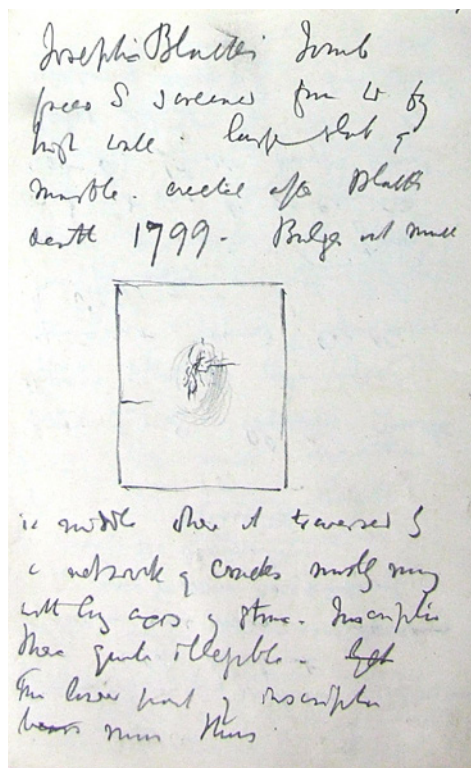 Joseph Black's Tomb
faces S screened from W by
high wall. large slab of
marble. erected after Black's
death 1799. Bulges out much
in middle where it traversed by
a network of cracks mostly running
with long axis of stone. Inscription
there quite illegible.
The lower part of inscription
runs thus